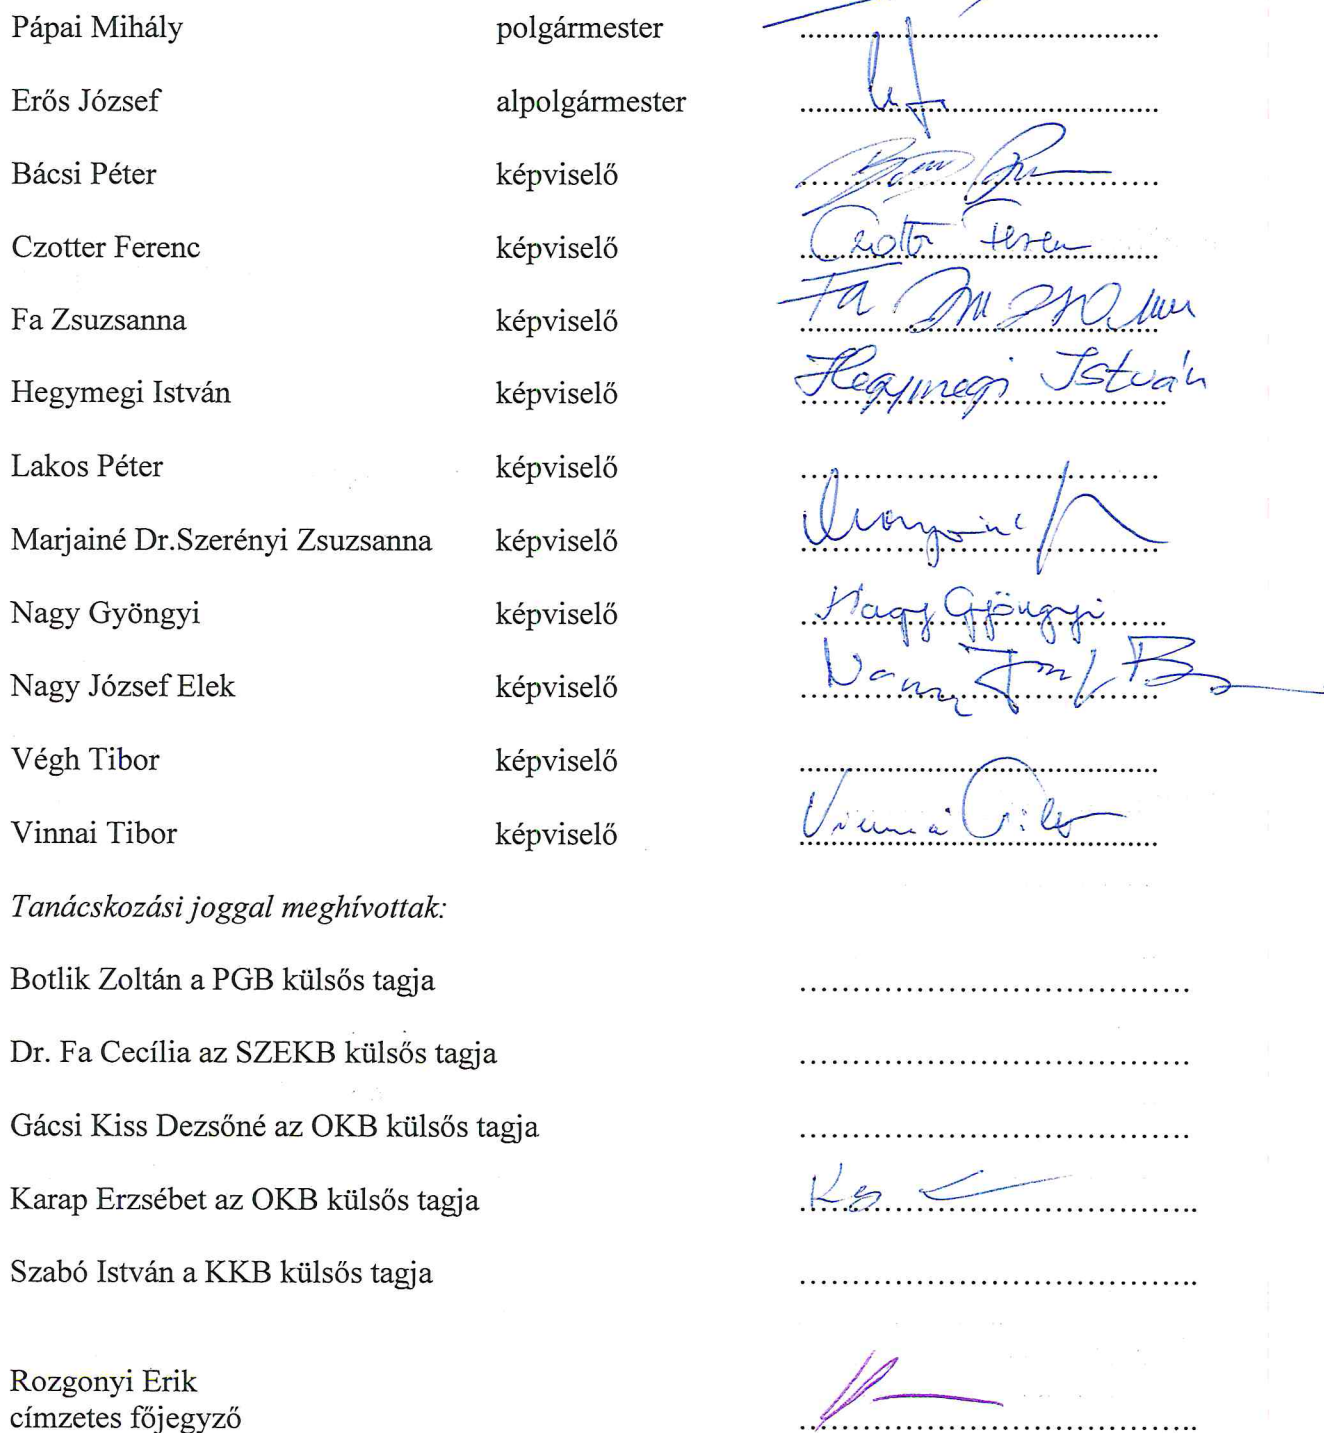 Pápai Mihály polgármester ........................................
Erős József alpolgármester ........................................
Bácsi Péter képviselő ........................................
Czotter Ferenc képviselő ........................................ Czotter Ferenc
Fa Zsuzsanna képviselő ........................................ Fa Zsuzsanna
Hegymegi István képviselő ........................................ Hegymegi István
Lakos Péter képviselő ........................................
Marjainé Dr.Szerényi Zsuzsanna képviselő ........................................
Nagy Gyöngyi képviselő ........................................ Nagy Gyöngyi
Nagy József Elek képviselő ........................................ Nagy József
Végh Tibor képviselő ........................................
Vinnai Tibor képviselő ........................................ Vinnai Tibor
Tanácskozási joggal meghívottak:
Botlik Zoltán a PGB külsős tagja ........................................
Dr. Fa Cecília az SZEKB külsős tagja ........................................
Gácsi Kiss Dezsőné az OKB külsős tagja ........................................
Karap Erzsébet az OKB külsős tagja ........................................
Szabó István a KKB külsős tagja ........................................
Rozgonyi Erik
címzetes főjegyző ........................................